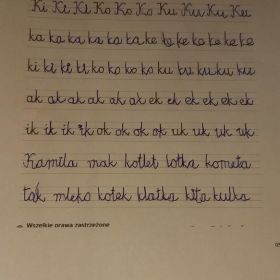 Ki Ki Ki Ko Ko Ko Ku Ku Ku Ku
ka ka ka ka ka ka ke ke ke ke ke ke
ki ki ki ki ko ko ko ko ku ku ku ku
ak ak ak ak ak ak ek ek ek ek ek ek
ik ik ik ik ok ok ok ok uk uk uk uk
Kamila mak kotlet lotka kometa
tak mleko kotek klatka kita kulka
Wszelkie prawa zastrzeżone